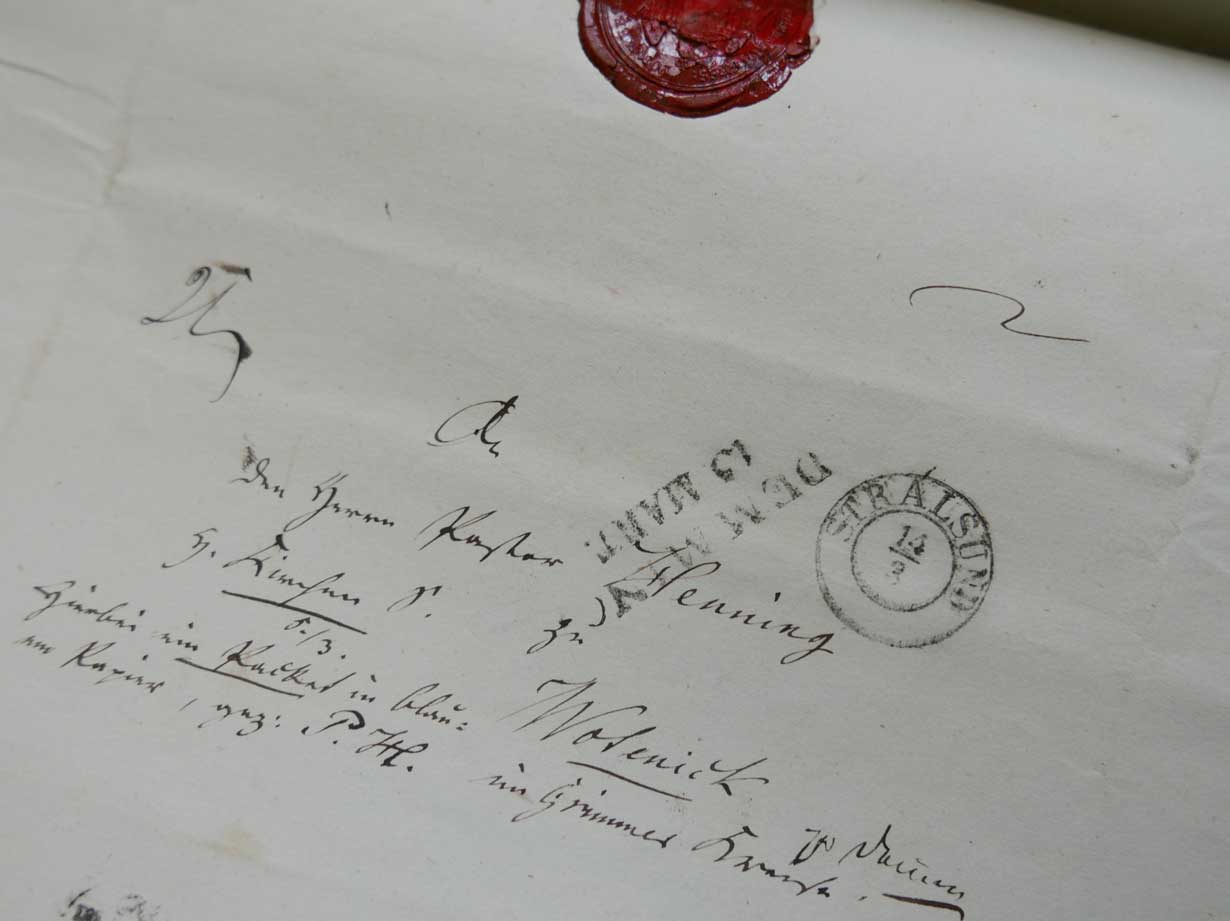 An
den Herrn Pastor Henning
zu
Wotenick
im Grimmer Kreise.
p Demmin
H. Kirchen S.
5./3.
Hierbei ein Packet in blau=
em Papier, gez: P. H.
DEMMIN
15 MART.
STRALSUND
14
3